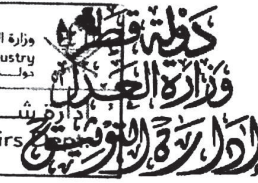 دولة قطر
وزارة العدل
إدارة التوثيق
وزارة ال
ustry
دولـ
إدارة شـ
irs